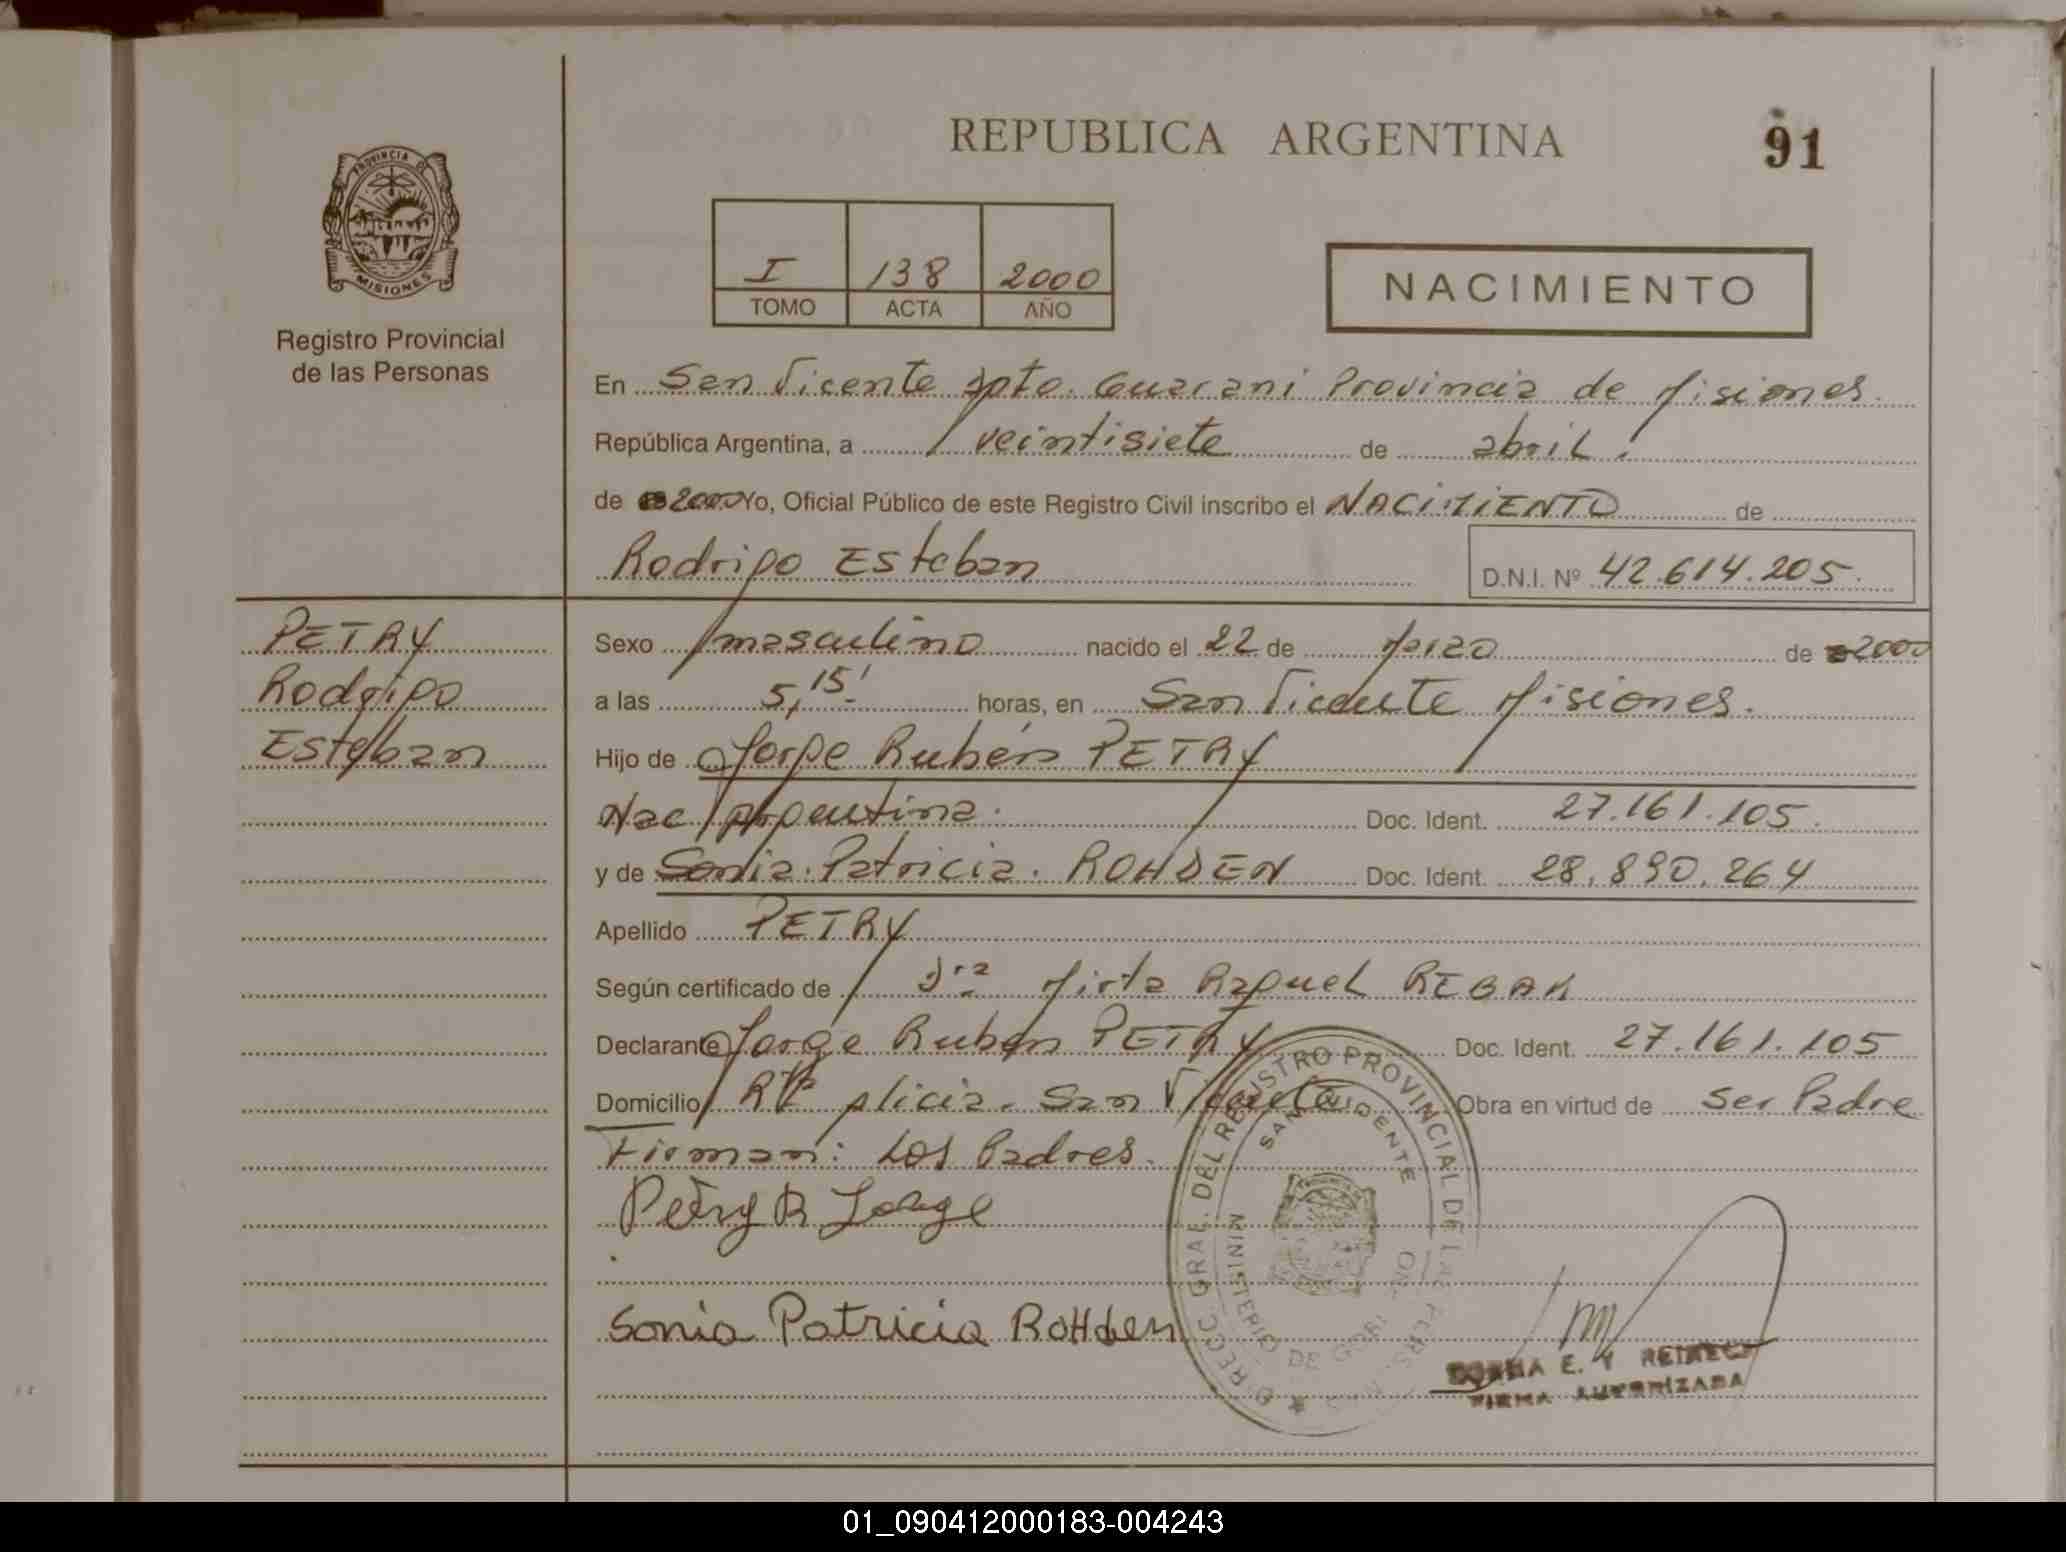 PROVINCIA DE
MISIONES
Registro Provincial
de las Personas
REPUBLICA ARGENTINA
91
I 138 2000
TOMO ACTA AÑO
NACIMIENTO
En San Vicente Dpto. Guarani Provincia de Misiones
República Argentina, a veintisiete de abril
de 2000 Yo, Oficial Público de este Registro Civil inscribo el NACIMIENTO de
Rodrigo Esteban D.N.I. Nº 42.614.205.
PETRY
Rodrigo
Esteban
Sexo masculino nacido el 22 de Marzo de 2000
a las 5,15' horas, en San Vicente Misiones.
Hijo de Jorge Rubén PETRY
Nac Argentina. Doc. Ident. 27.161.105.
y de Sonia Patricia ROHDEN Doc. Ident. 28.890.264
Apellido PETRY
Según certificado de Dra Mirta Raquel
Declarante Jorge Ruben PETRY Doc. Ident. 27.161.105
Domicilio San Vicente Obra en virtud de ser Padre
Firman: Los Padres.
Petry R Jorge
Sonia Patricia ROHden
DIRECC. GRAL. DEL REGISTRO PROVINCIAL DE LAS PERSONAS
SAN VICENTE
MINISTERIO DE GOBI
E. Y
FIRMA AUTORIZADA
01_090412000183-004243